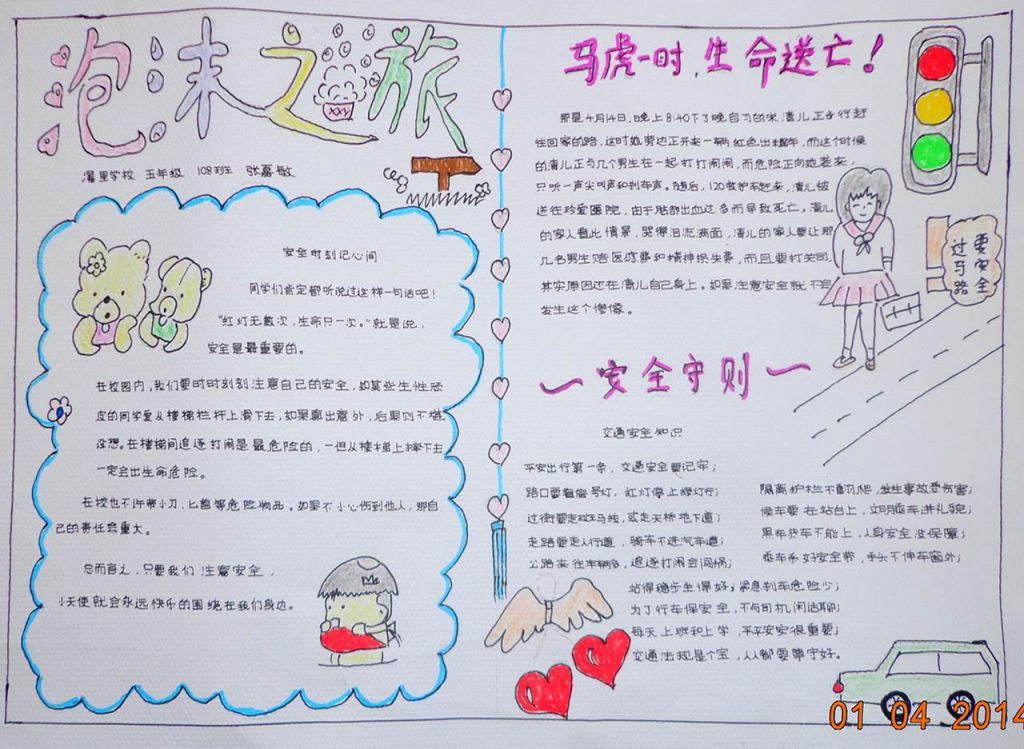 泡沫之旅
五年级 108班 张嘉敏
安全时刻记心间
同学们肯定都听说过这样一句话吧！
“红灯无数次，生命只一次。”就是说，
安全是最重要的。
在校园内，我们要时时刻刻注意自己的安全，如某些生性顽
皮的同学爱从楼梯栏杆上滑下去，如果弄出意外，后果则不堪
设想。在楼梯间追逐打闹是最危险的，一但从楼梯上摔下去
一定会出生命危险。
在校也不许带小刀，匕首等危险物品。如果不小心伤到他人，那自
己的责任莫重大。
总而言之，只要我们注意安全，
小天使就会永远快乐的围绕在我们身边。
马虎一时，生命送亡！
那是4月14日，晚上8:40下了晚自习的宋清儿正在行赶
往回家的路，这时她旁边正开来一辆红色出租车，而这个时候
的清儿正与几个男生在一起打打闹闹，而危险正向她袭来，
只听一声尖叫声和刹车声。随后，120救护车赶来，清儿被
送往珍爱医院，由于脑部出血过多而导致死亡，清儿
的家人看此情景，哭得泪流满面，清儿的家人要让那
几名男生陪医疗费和精神损失费，而且要打关司
其实原因还在清儿自己身上。如果注意安全就不会
发生这个惨像。
要安全
过马路
安全守则
交通安全知识
平安出行第一条，交通安全要记牢；
路口要看信号灯，红灯停止绿灯行；
过街要走斑马线，或走天桥地下道；
走路要走人行道，骑车不进汽车道；
公路来往车辆多，追逐打闹会闯祸；
隔离护栏不翻爬，发生事故受伤害；
候车要在站台上，文明乘车讲礼貌；
黑车货车不能上，人身安全没保障；
乘车系好安全带，手头不伸车窗外；
站得稳步坐得好，紧急刹车危险少；
为了行车保安全，不与司机闲话聊；
每天上班和上学，平平安安很重要；
交通法规是个宝，人人都要遵守好。
01 04 2014